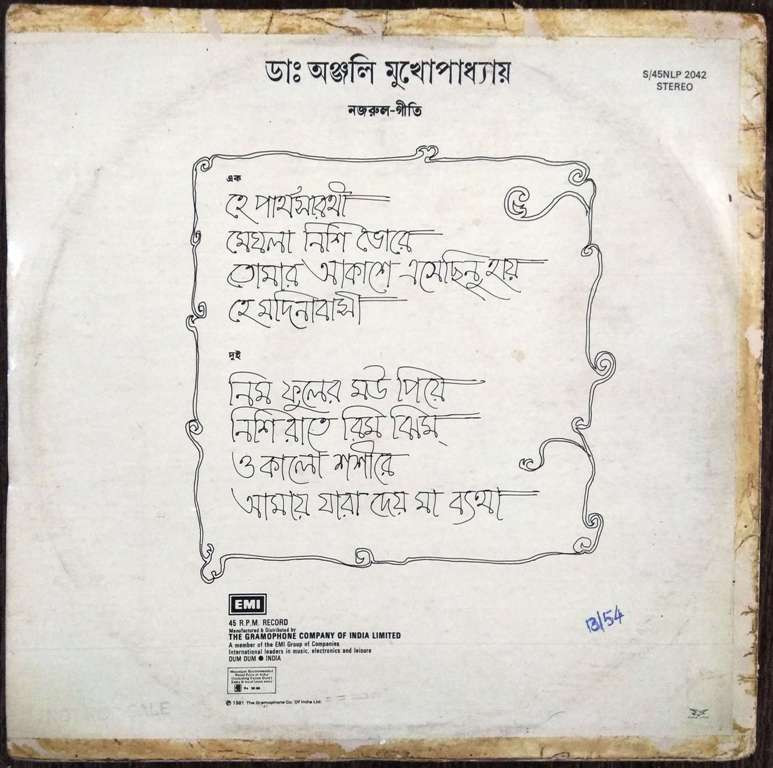 ডাঃ অঞ্জলি মুখোপাধ্যায়
S/45NLP 2042
STEREO
নজরুল-গীতি
এক
হে পার্থসারথী
মেঘলা নিশি ভোরে
তোমার আকাশে এসেছিনু হায়
হে মদিনাবাসী
দুই
নিম ফুলের মউ পিয়ে
নিশি রাতে রিম ঝিম্
ও কালো শশীরে
আমায় যারা দেয় মা ব্যথা
EMI
45 R.P.M. RECORD
Manufactured & Distributed by
THE GRAMOPHONE COMPANY OF INDIA LIMITED
A member of the EMI Group of Companies
International leaders in music, electronics and leisure
DUM DUM ● INDIA
℗ 1981 The Gramophone Co. Of India Ltd.
13/54